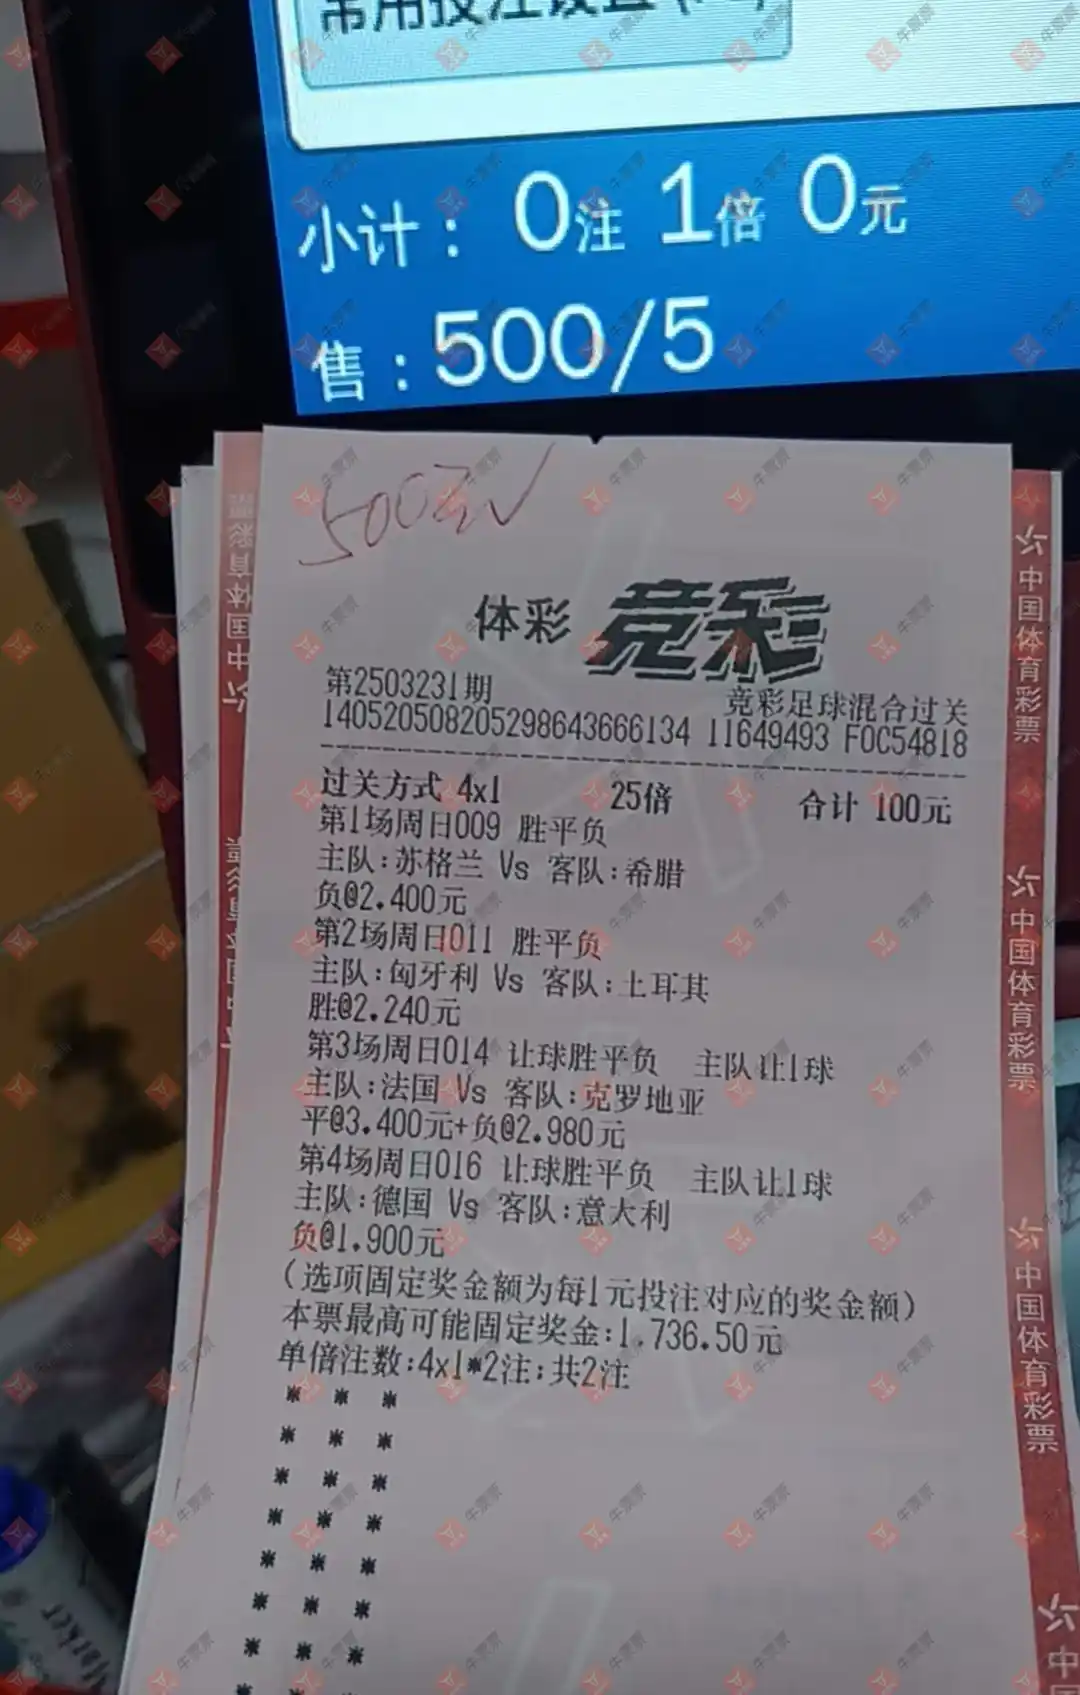 常用投注设置
小计： 0注 1倍 0元
售：500/5
500元√
体彩 竞彩
第2503231期 竞彩足球混合过关
140520508205298643666134 11649493 F0C54818
过关方式 4x1 25倍 合计 100元
第1场周日009 胜平负
主队:苏格兰 Vs 客队:希腊
负@2.400元
第2场周日011 胜平负
主队:匈牙利 Vs 客队:土耳其
胜@2.240元
第3场周日014 让球胜平负 主队让1球
主队:法国 Vs 客队:克罗地亚
平@3.400元+负@2.980元
第4场周日016 让球胜平负 主队让1球
主队:德国 Vs 客队:意大利
负@1.900元
(选项固定奖金额为每1元投注对应的奖金额)
本票最高可能固定奖金:1,736.50元
单倍注数:4x1*2注;共2注
中国体育彩票
中国体育彩票
中国体育彩票
中国
中国体育彩票
Marker
牛票票